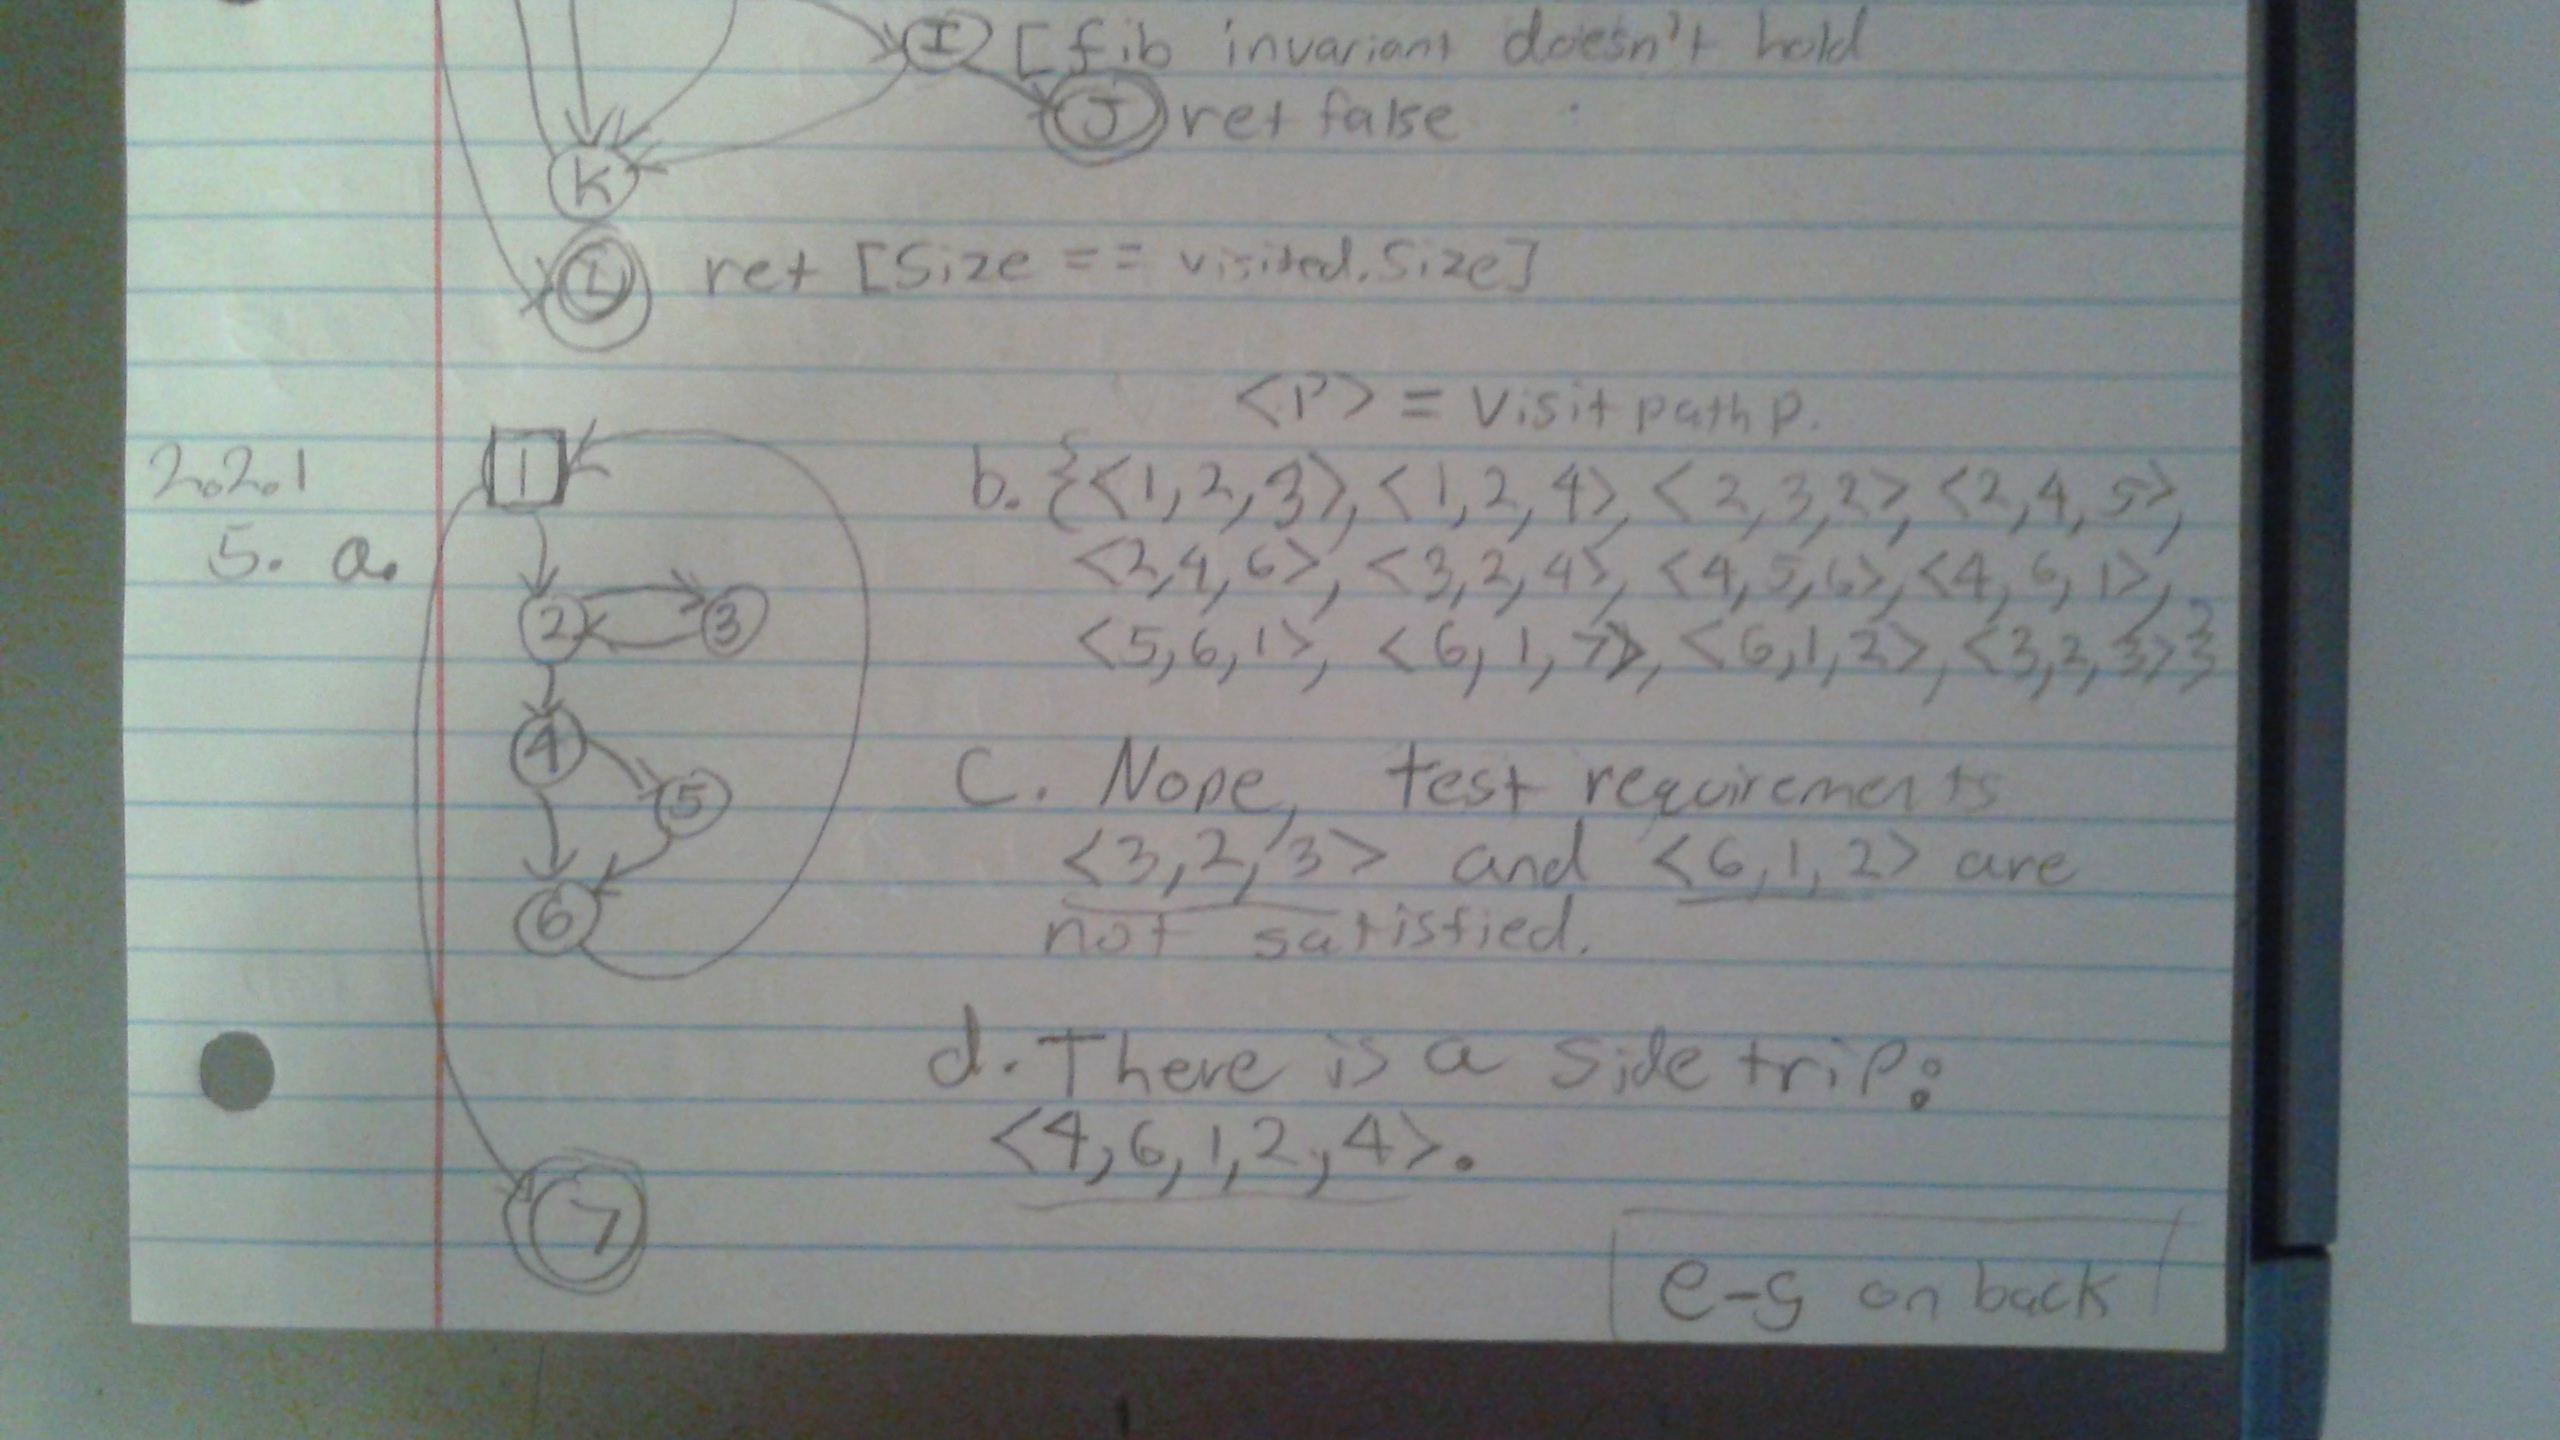 I [fib invariant doesn't hold
J ret false
K
L ret [Size == visited.Size]
<P> = Visit path p.
2.2.1
5. a.
1
2
3
4
5
6
7
b. {<1,2,3>, <1,2,4>, <2,3,2> <2,4,5>,
<2,4,6>, <3,2,4>, <4,5,6>, <4,6,1>,
<5,6,1>, <6,1,7>, <6,1,2>, <3,2,3>}
C. Nope, test requirements
<3,2,3> and <6,1,2> are
not satisfied.
d. There is a side trip:
<4,6,1,2,4>.
e-g on back